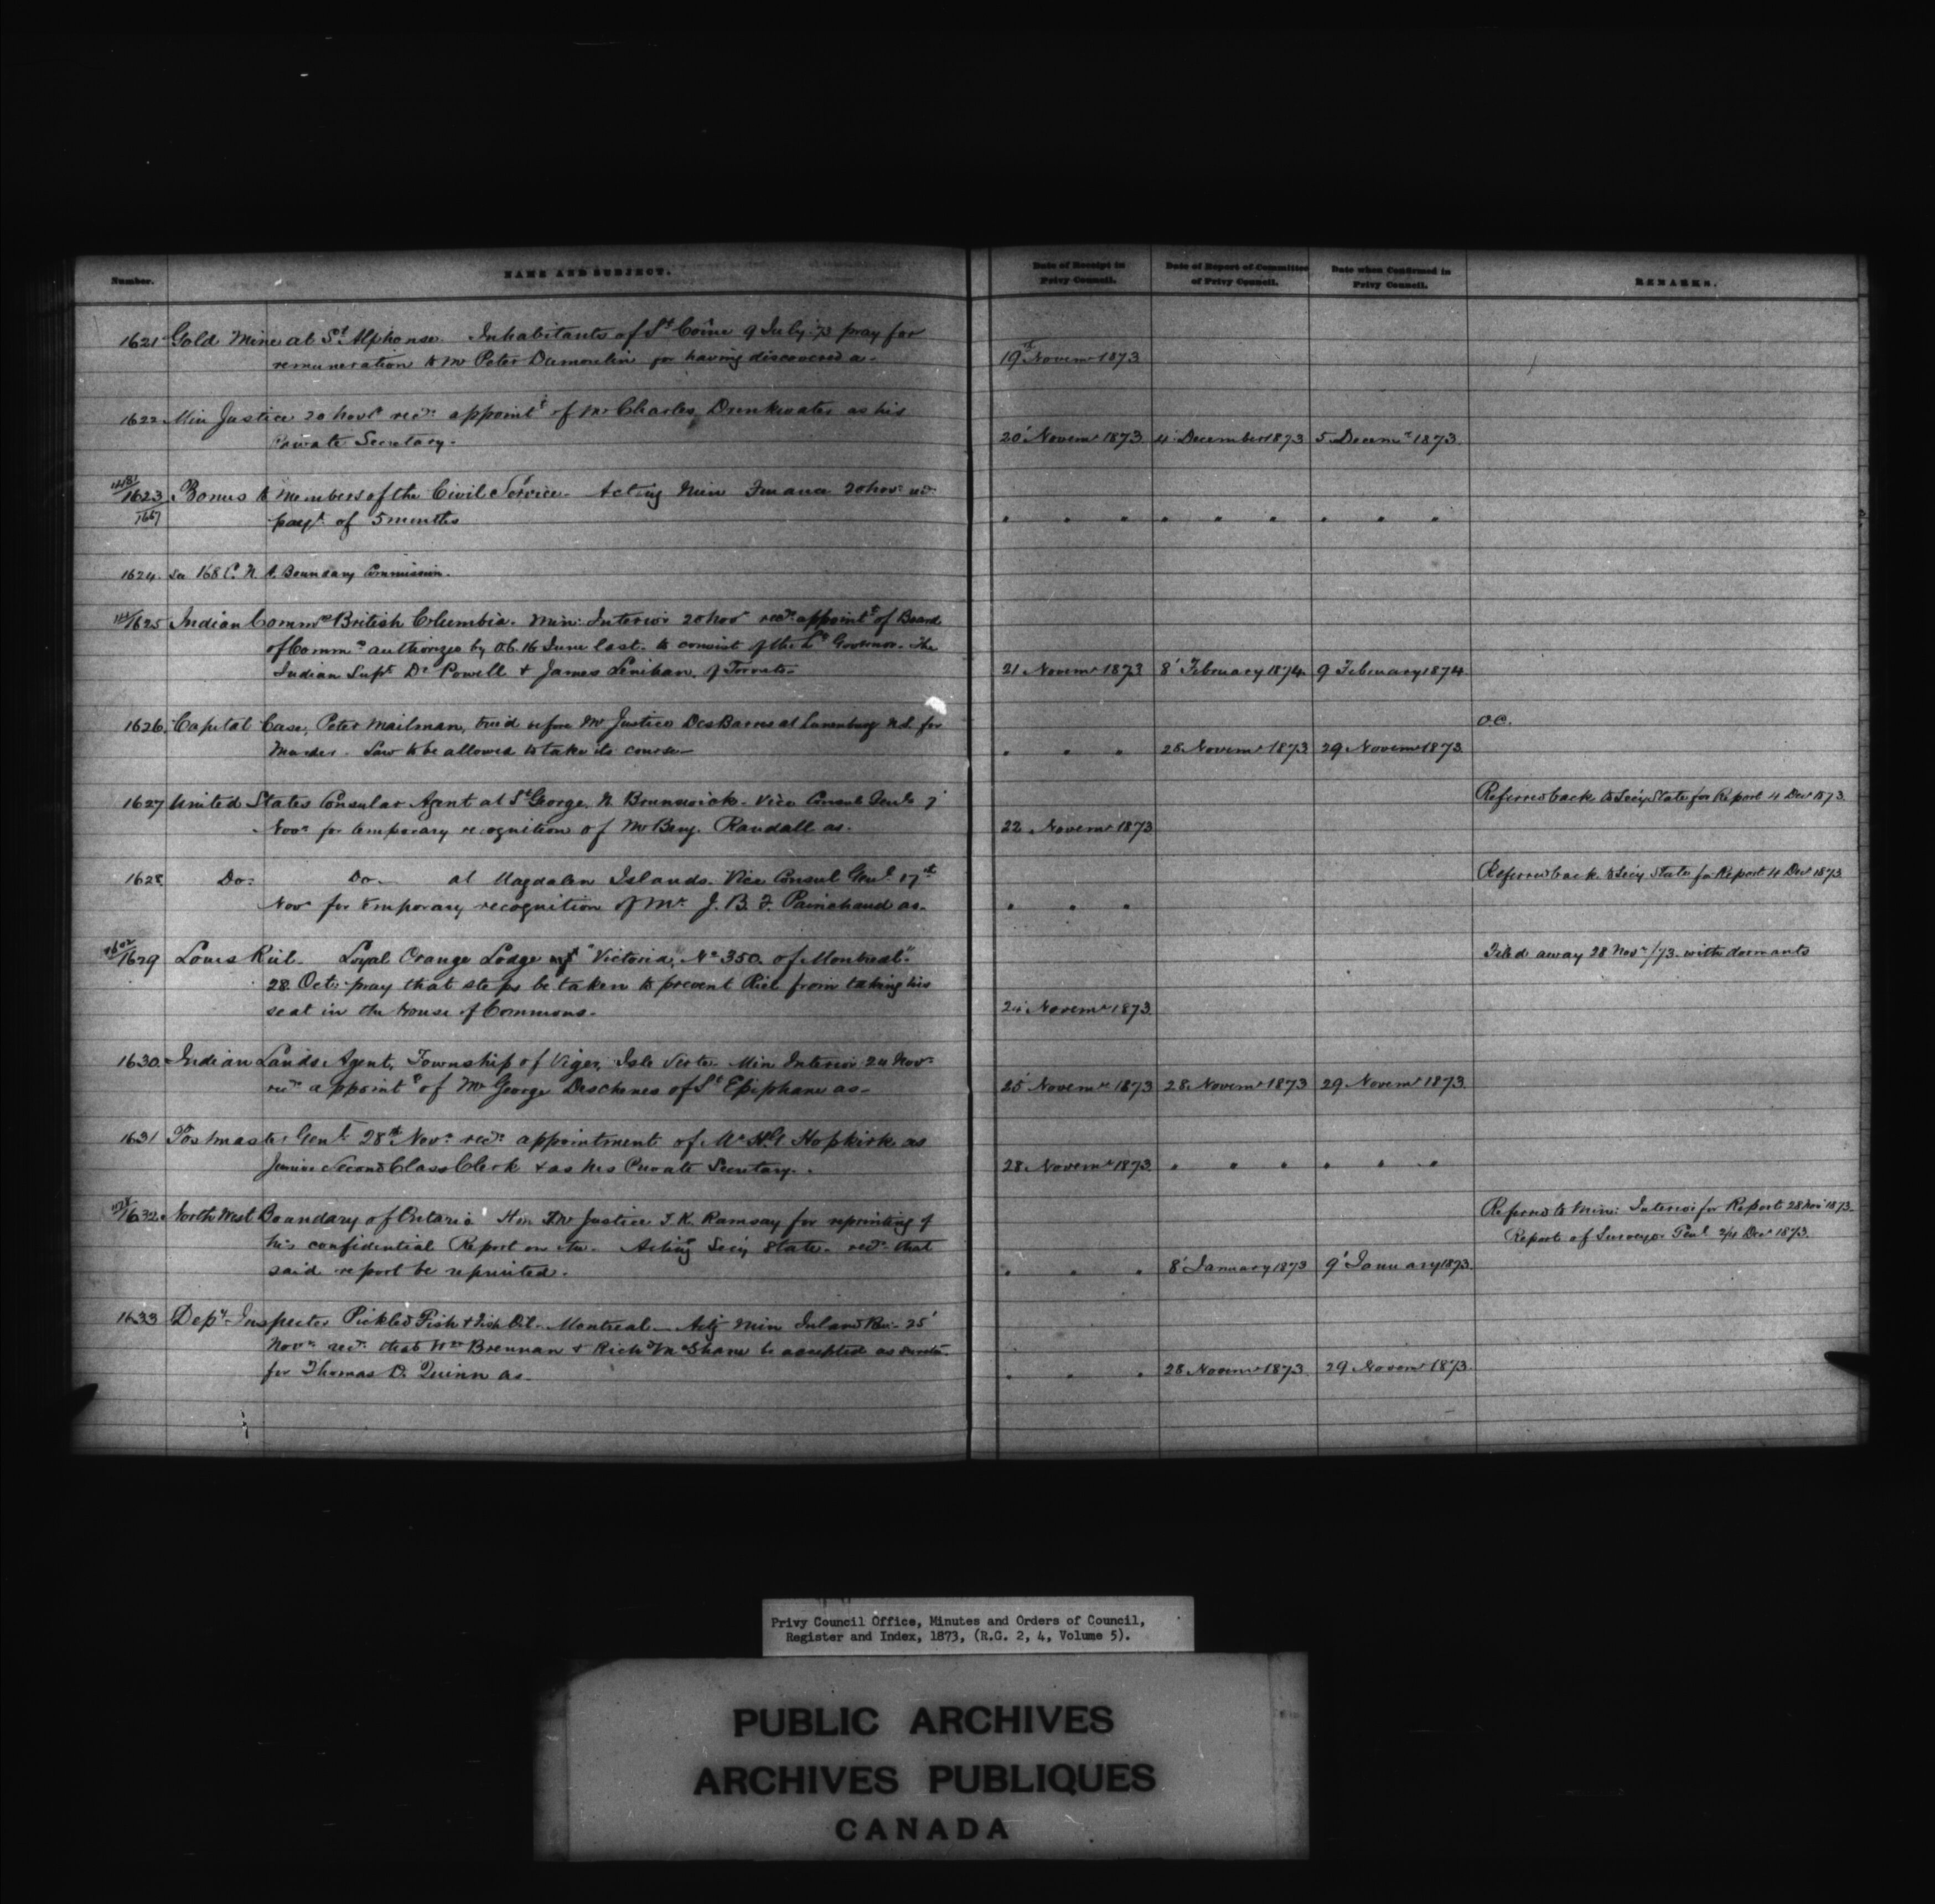 Number. NAME AND SUBJECT. Date of Receipt in Privy Council. Date of Report of Committee of Privy Council. Date when Confirmed in Privy Council. REMARKS.
1621 Gold Mine at St Alphonse. Inhabitants of St Côme 9 July 73 pray for
remuneration to Mr Peter Dumoulin for having discovered a- 19th Novemr 1873
1622 Min Justice 20 Novr recs appointt of Mr Charles Drinkwater as his
Private Secretary. 20' Novemr 1873 4' December 1873 5 Decemr 1873
1623 Bonus to members of the Civil Service. Acting Min Finance 20 Novr recs
1667 payt of 5 months " " " " " " " " "
1624. See 168 C. N. A. Boundary Commission.
1625 Indian Commrs British Columbia. Min: Interior 20 Novr recs appointt of Board
of Commrs authorized by O.C. 16 June last. to consist of the Lt Governor. The
Indian Supt Dr Powell & James Lenihan of Toronto. 21 Novemr 1873 8' February 1874 9 February 1874
1626. Capital Case, Peter Mailman, tried before Mr Justice DesBarres at Lunenburg N.S. for O.C.
Murder. Law to be allowed to take its course. " " " 28 Novemr 1873 29 Novemr 1873
1627 United States Consular Agent at St George, N Brunswick. Vice Consul Genl 7' Referred back to Secy State for Report 4 Decr 1873
Novr for temporary recognition of Mr Benj. Randall as. 22 Novemr 1873
1628 Do. Do. at Magdalen Islands. Vice Consul Genl 17th Referred back to Secy State for Report 4 Decr 1873
Novr for temporary recognition of Mr J. B. F. Painchaud as. " " "
1629 Louis Riel. Loyal Orange Lodge of "Victoria, No 350. of Montreal." Filed away 28 Novr /73. with dormants
28 Octr pray that steps be taken to prevent Riel from taking his
seat in the House of Commons. 24 Novemr 1873
1630. Indian Lands Agent, Township of Viger, Isle Verte. Min Interior 24 Novr
recs appointt of Mr George Deschenes of St Epiphane as. 25' Novemr 1873 28 Novemr 1873 29 Novemr 1873.
1631 Postmaster Genl 28th Novr recs appointment of Mr H.G Hopkirk as
Junior Second Class Clerk & as his Private Secretary. 28 Novemr 1873. " " " " " "
1632. North West Boundary of Ontario Hon Mr Justice T. K. Ramsay for reprinting of Referred to Min: Interior for Report 28 Novr 1873.
his confidential Report on the. Acting Secy State. recs that Report of Surveyor Genl 2/4 Decr 1873.
said report be reprinted. " " " 8' January 1873 9' January 1873.
1633 Depy Inspector Pickled Fish & Fish Oil. Montreal. Actg Min Inland Rev. 25'
Novr recs that Wm Brennan & Richd McShane be accepted as sureties
for Thomas D. Quinn as. " " " 28 Novemr 1873. 29 Novemr 1873.
Privy Council Office, Minutes and Orders of Council,
Register and Index, 1873, (R.G. 2, 4, Volume 5).
PUBLIC ARCHIVES
ARCHIVES PUBLIQUES
CANADA